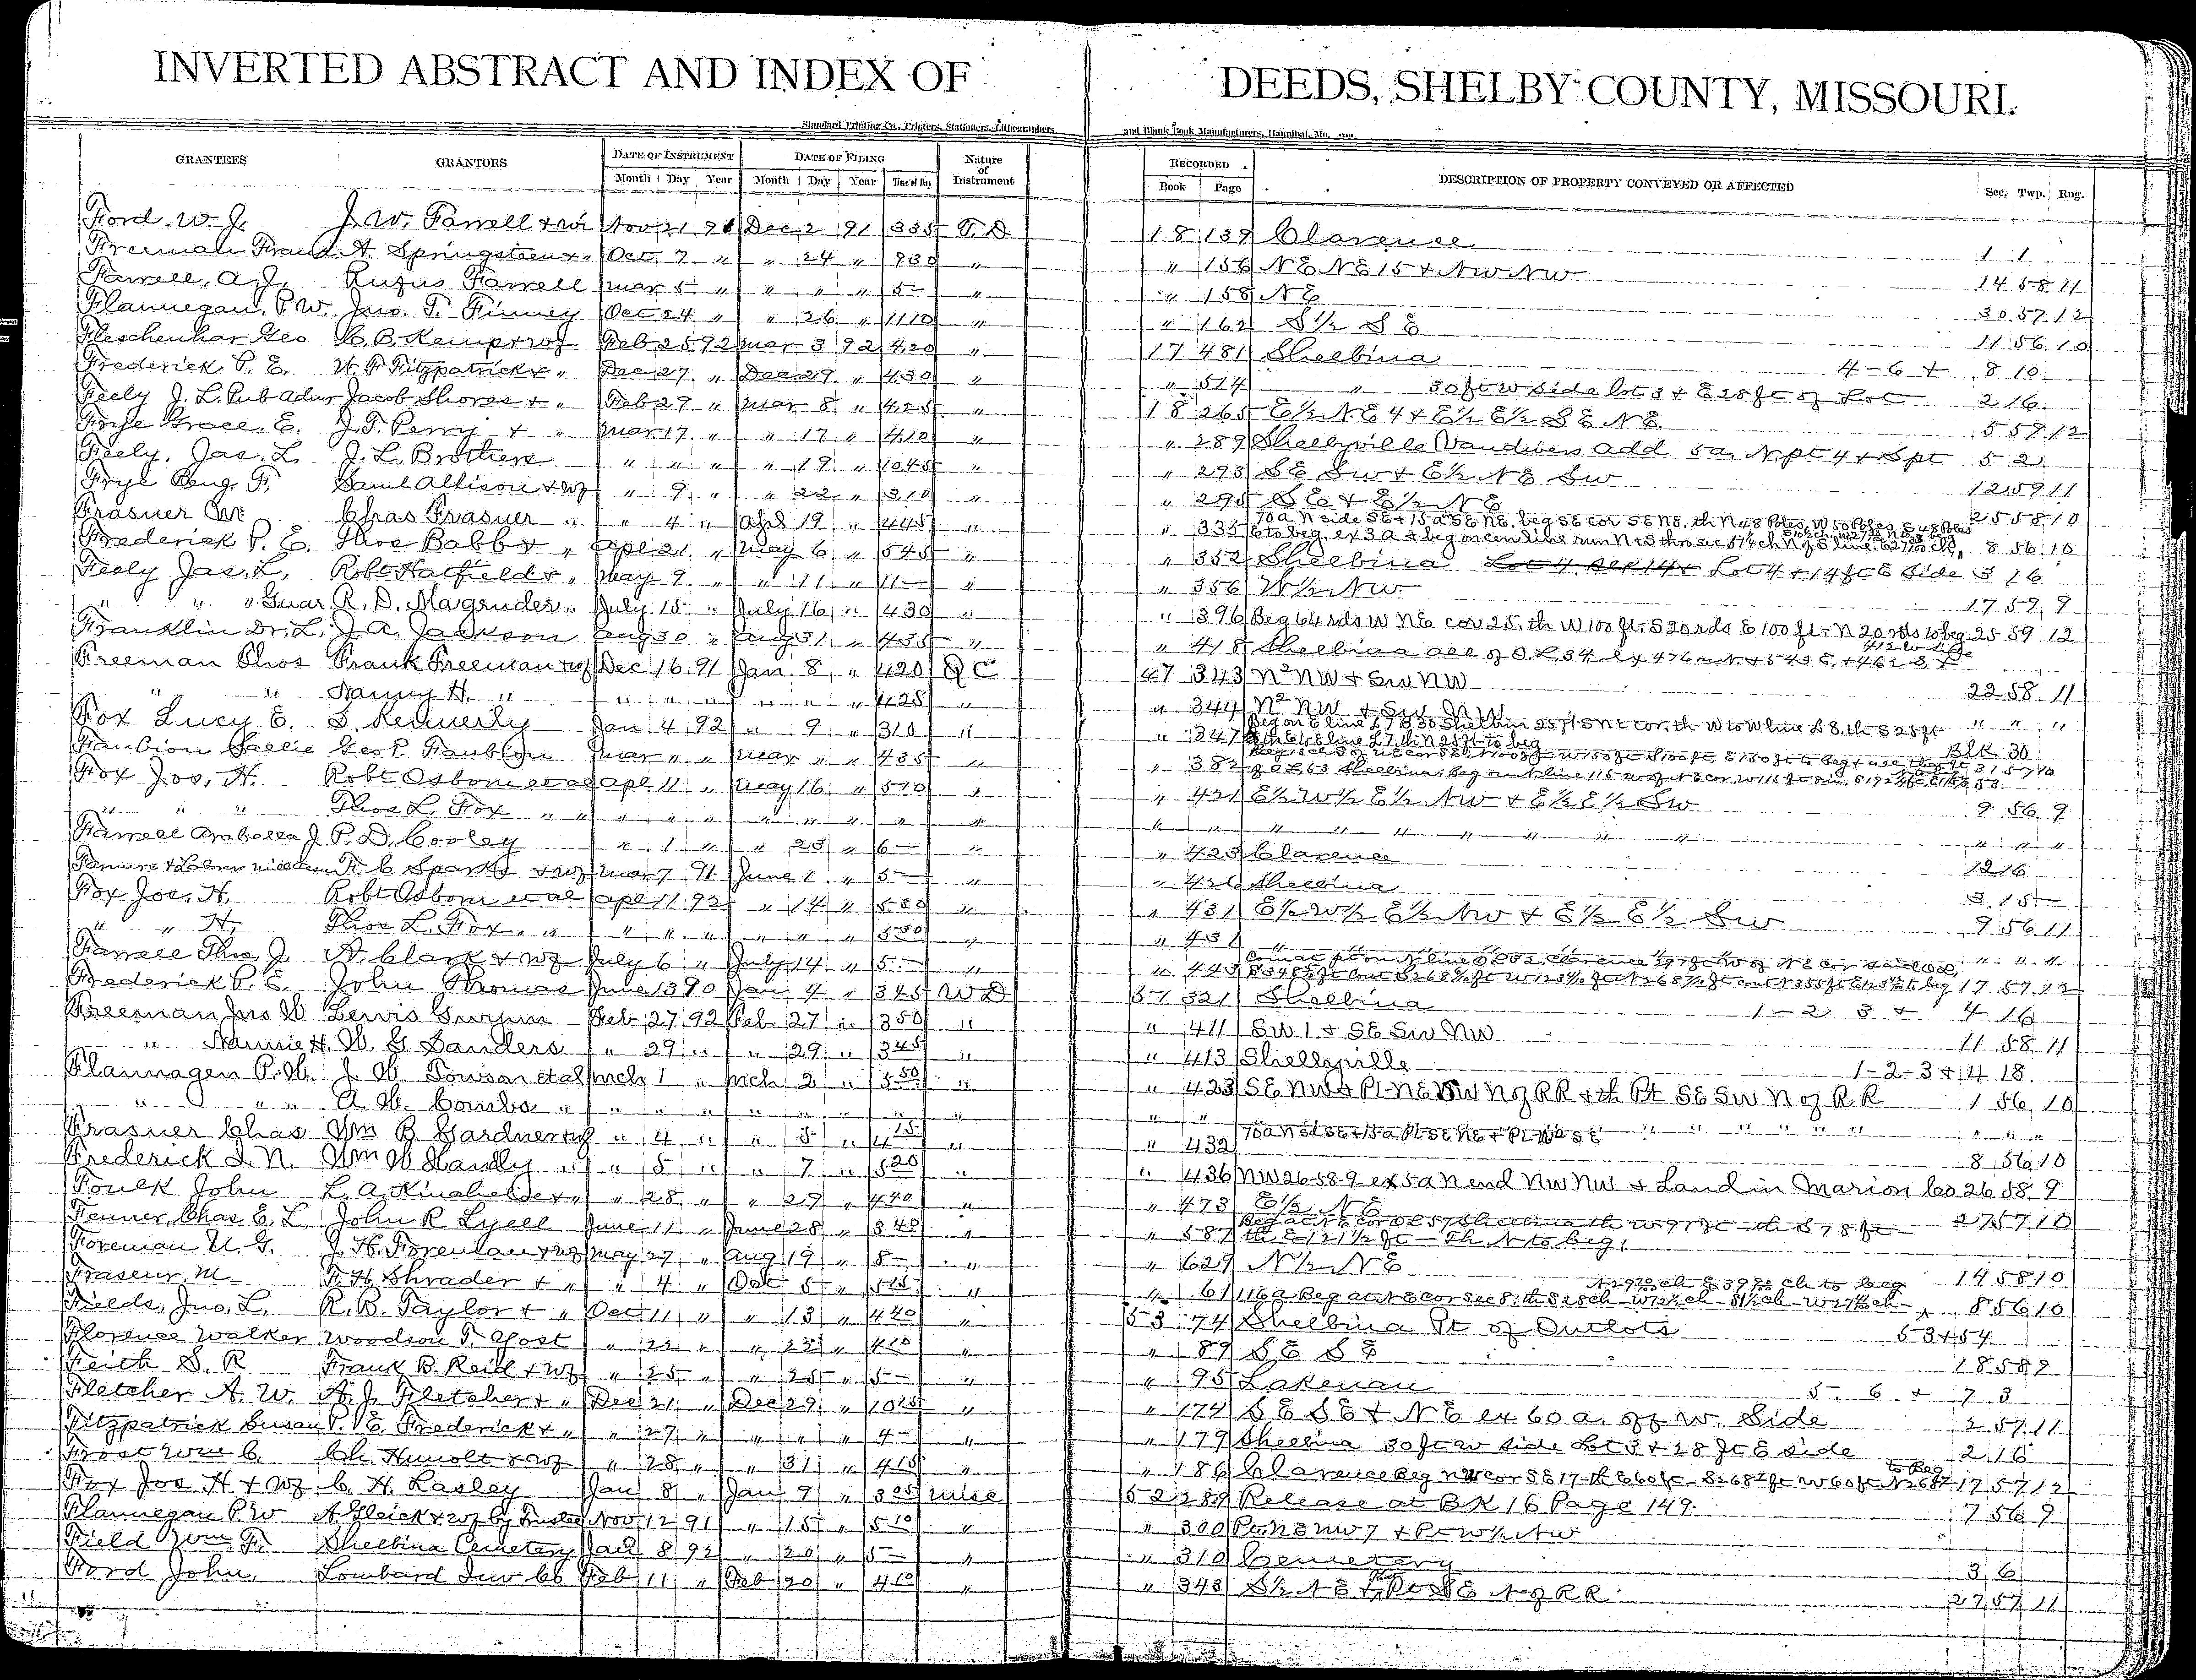 INVERTED ABSTRACT AND INDEX OF DEEDS, SHELBY COUNTY, MISSOURI.
Standard Printing Co., Printers, Stationers, Lithographers and Blank Book Manufacturers, Hannibal, Mo.
GRANTEES GRANTORS DATE OF INSTRUMENT DATE OF FILING Nature of Instrument RECORDED DESCRIPTION OF PROPERTY CONVEYED OR AFFECTED Sec. Twp. Rng.
Month Day Year Month Day Year Time of Day Book Page
Ford, W. J. J. W. Farrell + wi Nov 21 91 Dec 2 91 335 T. D 18 139 Clarence 1 1
Freeman Frank A. Springsteen + " Oct 7 " " 24 " 930 " " 156 NE NE 15 + NW NW 14 58 11
Farrell, A. J. Rufus Farrell Mar 5 " " " " 5- " " 158 NE 30 57 12
Flannegan, P. W. Jno. T. Finney Oct 24 " " 26 " 1110 " " 162 S½ SE 11 56 10
Fleschenhar Geo C. B. Kemp + wf Feb 25 92 Mar 3 92 420 " 17 481 Shelbina 4-6 + 8 10
Frederick P. E. W. F. Fitzpatrick + " Dec 27 " Dec 29 " 430 " " 574 " 30 ft W side lot 3 + E 28 ft of Lot 2 16
Feely J. L. Pub Admr Jacob Shores + " Feb 29 " Mar 8 " 425 " 18 265 E½ NE 4 + E½ E½ SE NE 5 59 12
Frye Grace E. J. T. Perry + " Mar 17 " " 17 " 410 " " 289 Shelbyville Vandivers Add 5a, N pt 4 + S pt 5 2
Feely, Jas. L. J. L. Brothers " " " " 19 " 1045 " " 293 SE SW + E½ NE SW 12 59 11
Frye Benj. F. Saml Allison + wf " 9 " " 22 " 310 " " 295 SE + E½ NE 25 58 10
Frasuer M Chas Frasuer " " 4 " Apl 19 " 445 " " 335 70 a N side SE + 15 a SE NE, beg SE cor SE NE, th N 48 Poles, W 50 Poles, S 48 Poles
E to beg, ex 3 a + beg on cen line run N + S thro sec 8 56 10
Frederick P. E. Thos Babb + " Apl 21 " May 6 " 545 " " 352 Shelbina Lot 4 + 14 ft E Side 3 16
Feely Jas. L. Robt Hatfield + " May 9 " " 11 " 11- " " 356 W½ NW 17 59 9
" " " Guar R. D. Magruder " July 15 " July 16 " 430 " " 396 Beg 64 rds W NE cor 25, th W 100 ft, S 20 rds E 100 ft - N 20 rds to beg 25 59 12
Franklin Dr. L. J. A. Jackson Aug 30 " Aug 31 " 435 " " 418 Shelbina all of O. L 34
Freeman Thos Frank Freeman + wf Dec 16 91 Jan 8 " 420 QC 47 343 N² NW + SW NW 22 58 11
" " Nanny H. " " " " " " " 425 " " 344 N² NW + SW NW " " "
Fox Lucy E. S. Kennerly Jan 4 92 " 9 " 310 " " 347 Beg on E line L 7 B 30 Shelbina 25 ft S NE cor, th W to W line L 8, th S 25 ft
th E to E line L 7, th N 25 ft to beg Blk 30
Faubion Sallie Geo P. Faubion Mar " " Mar " " 435 " " 382 31 57 10
Fox Jos, H. Robt Osborn et al Apl 11 " May 16 " 510 " " 421 E½ W½ E½ NW + E½ E½ SW 9 56 9
" " " Thos L. Fox " " " " " " " " " " " " " " " " " " " " "
Farrell Arabella J P. D. Cooley " 1 " " 25 " 6- " " 423 Clarence 12 16
F. C Sparks + wf Mar 7 91 June 1 " 5- " " 426 Shelbina 3 15
Fox Jos. H. Robt Osborn et al Apl 11 92 " 14 " 550 " " 431 E½ W½ E½ NW + E½ E½ SW 9 56 11
" " H. Thos L. Fox " " " " " " " " 550 " " 431 " " " "
Farrell Thos. J. A. Clark + wf July 6 " July 14 " 5- " " 443 17 57 12
Frederick P. E. John Thomas June 13 90 Jan 4 " 345 WD 51 321 Shelbina 1-2 3 + 4 16
Freeman Jno W Lewis Gwynn Feb 27 92 Feb 27 " 350 " " 411 SW 1 + SE SW NW 11 58 11
" Nannie H. W. G Sanders " 29 " " 29 " 345 " " 413 Shelbyville 1-2-3 + 4 18
Flannagen P. W. J. W. Towson et al Mch 1 " Mch 2 " 550 " " 423 SE NW + Pt NE SW N of RR + th Pt SE SW N of R R 1 56 10
" " " A. W. Combs " " " " " " " " " " " " " " " " " " "
Frasuer Chas Wm B. Gardner + wf " 4 " " 5 " 415 " " 432 70 a N Sd SE + 15 a Pt SE NE + Pt W² SE 8 56 10
Frederick I. N. Wm W Handly " " 5 " " 7 " 520 " " 436 NW 26-58-9 ex 5 a N end NW NW + Land in Marion Co 26 58 9
Foulk John L. A. Kincheloe + " " 28 " " 29 " 440 " " 473 E½ NE 27 57 10
Fenner, Chas. E. L. John R Lyell June 11 " June 28 " 340 " " 587 Beg at NE cor OL 57 Shelbina th W 91 ft - th S 78 ft -
th E 121½ ft - Th N to beg.
Foreman U. G. J. H. Foreman + wf May 27 " Aug 19 " 8- " " 629 N½ NE 14 58 10
Fraseur, M F. H. Shrader + " " 4 " Oct 5 " 515 " " 61 116 a Beg at NE cor Sec 8, th S 28 ch 8 56 10
Fields, Jno. L. R. B. Taylor + " Oct 11 " " 13 " 440 " 53 74 Shelbina Pt of Outlots 53 + 54
Florence Walker Woodson T. Yost " 22 " " 22 " 410 " " 89 SE SE 18 58 9
Feith S. R Frank B. Reid + wf " 25 " " 25 " 5- " " 95 Lakenan 5- 6 + 7 3
Fletcher A. W. A. J. Fletcher + " Dec 21 " Dec 29 " 1015 " " 174 SE SE + NE ex 60 a. off W. Side 2 57 11
Fitzpatrick Susan P. E. Frederick + " " 27 " " " " 4- " " 179 Shelbina 30 ft W side Lot 3 + 28 ft E side 2 16
Frost Wm C. Ch. Hunolt + wf " 28 " " 31 " 415 " " 186 Clarence Beg NW cor SE 17 - th E 60 ft - S 268² ft W 60 ft N 268² to Beg 17 57 12
Fox Jos H + wf C. H. Lasley Jan 8 " Jan 9 " 305 Misc 52 289 Release at BK 16 Page 149. 7 56 9
Flannegan P. W A. Gleick + wf by Trustee Nov 12 91 " 15 " 510 " " 300 Pt NE NW 7 + Pt W½ NW
Field Wm. F. Shelbina Cemetery Jan 8 92 " 20 " 5- " " 310 Cemetery 3 6
Ford John. Lombard Inv Co Feb 11 " Feb 20 " 410 " " 343 S½ NE + Pt SE N of R R 27 57 11